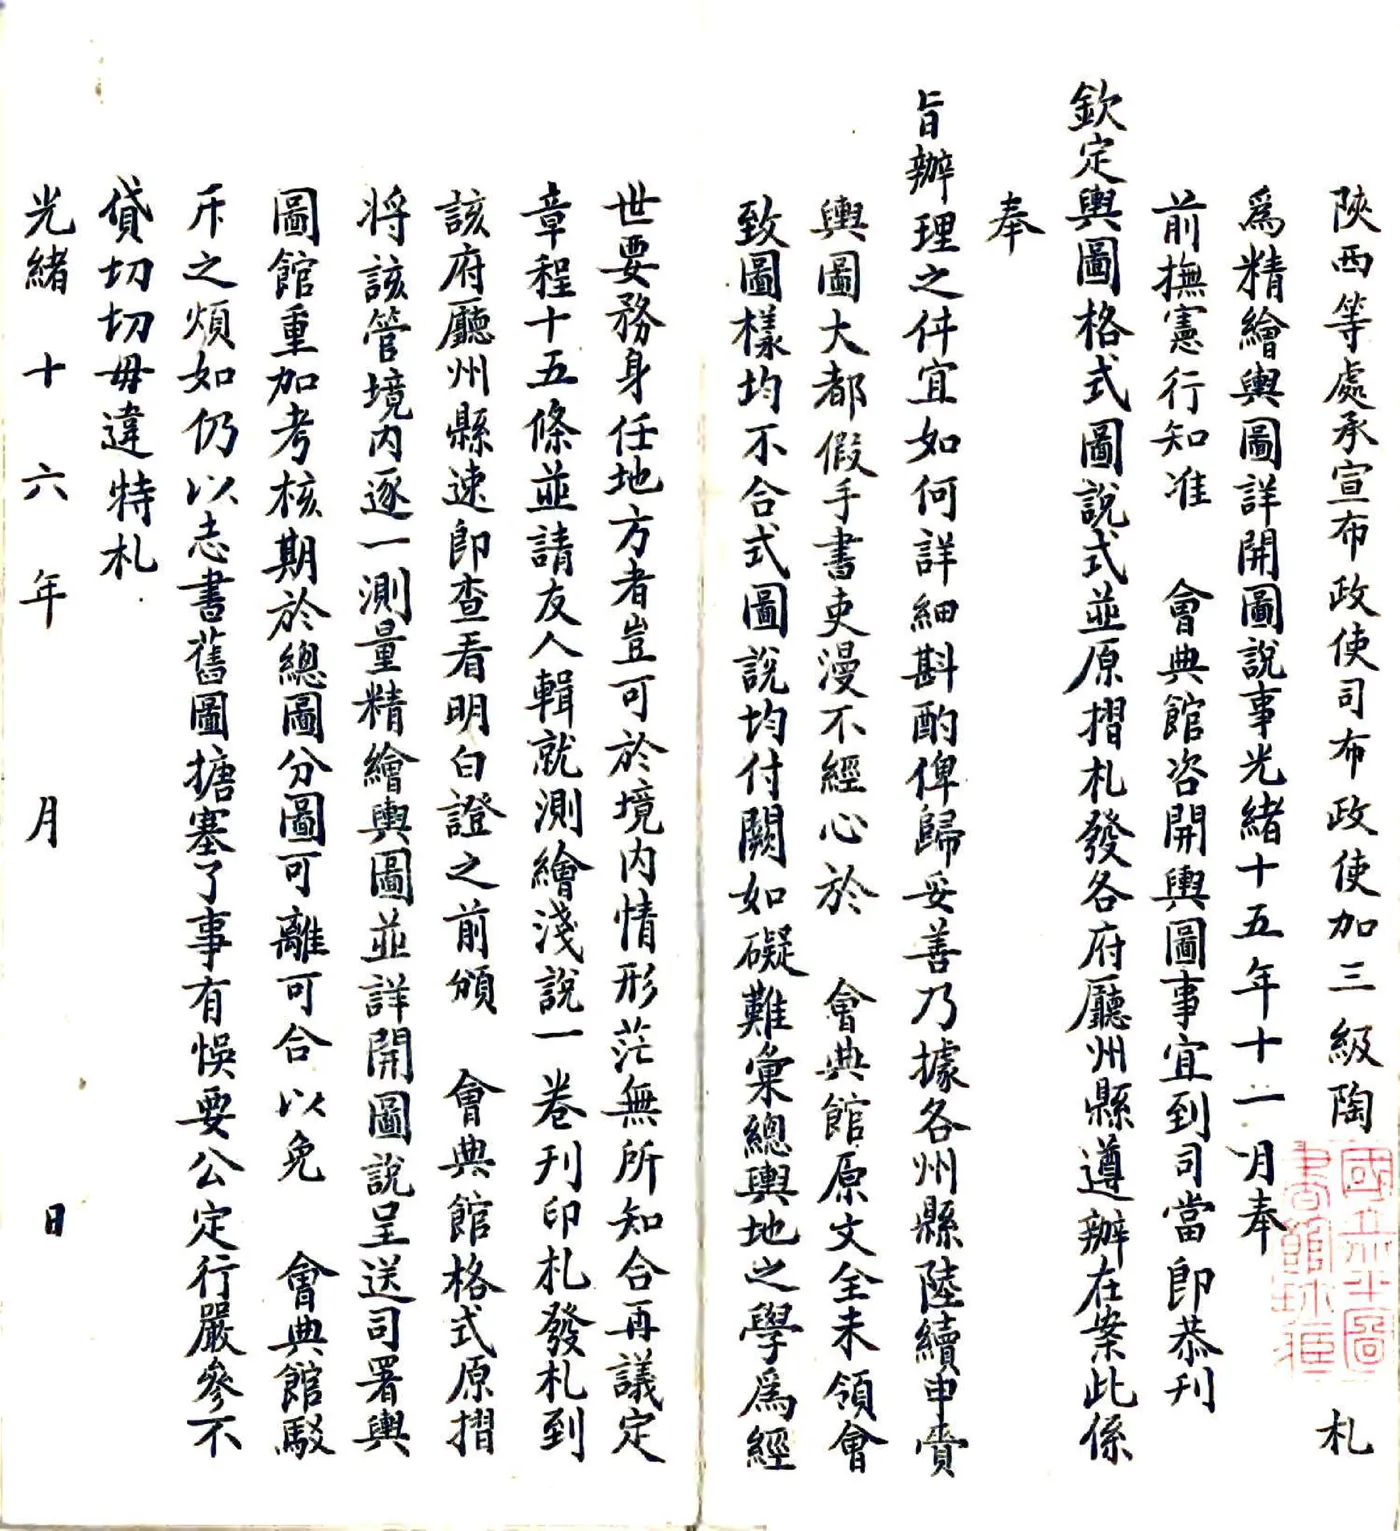 陝西等處承宣布政使司布政使加三級陶 札
爲精繪輿圖詳開圖說事光緒十五年十一月奉
前撫憲行知准 會典館咨開輿圖事宜到司當即恭刊
欽定輿圖格式圖說式並原摺札發各府廳州縣遵辦在案此係
奉
旨辦理之件宜如何詳細斟酌俾歸妥善乃據各州縣陸續申賫
輿圖大都假手書吏漫不經心於 會典館原文全未領會
致圖樣均不合式圖說均付闕如礙難彙總輿地之學爲經
世要務身任地方者豈可於境内情形茫無所知合再議定
章程十五條並請友人輯就測繪淺說一卷刊印札發札到
該府廳州縣速即查看明白證之前頒 會典館格式原摺
将該管境内逐一測量精繪輿圖並詳開圖說呈送司署輿
圖館重加考核期於總圖分圖可離可合以免 會典館駁
斥之煩如仍以志書舊圖搪塞了事有悞要公定行嚴參不
貸切切毋違特札
光緒十六年 月 日
國立北平圖書館珍藏